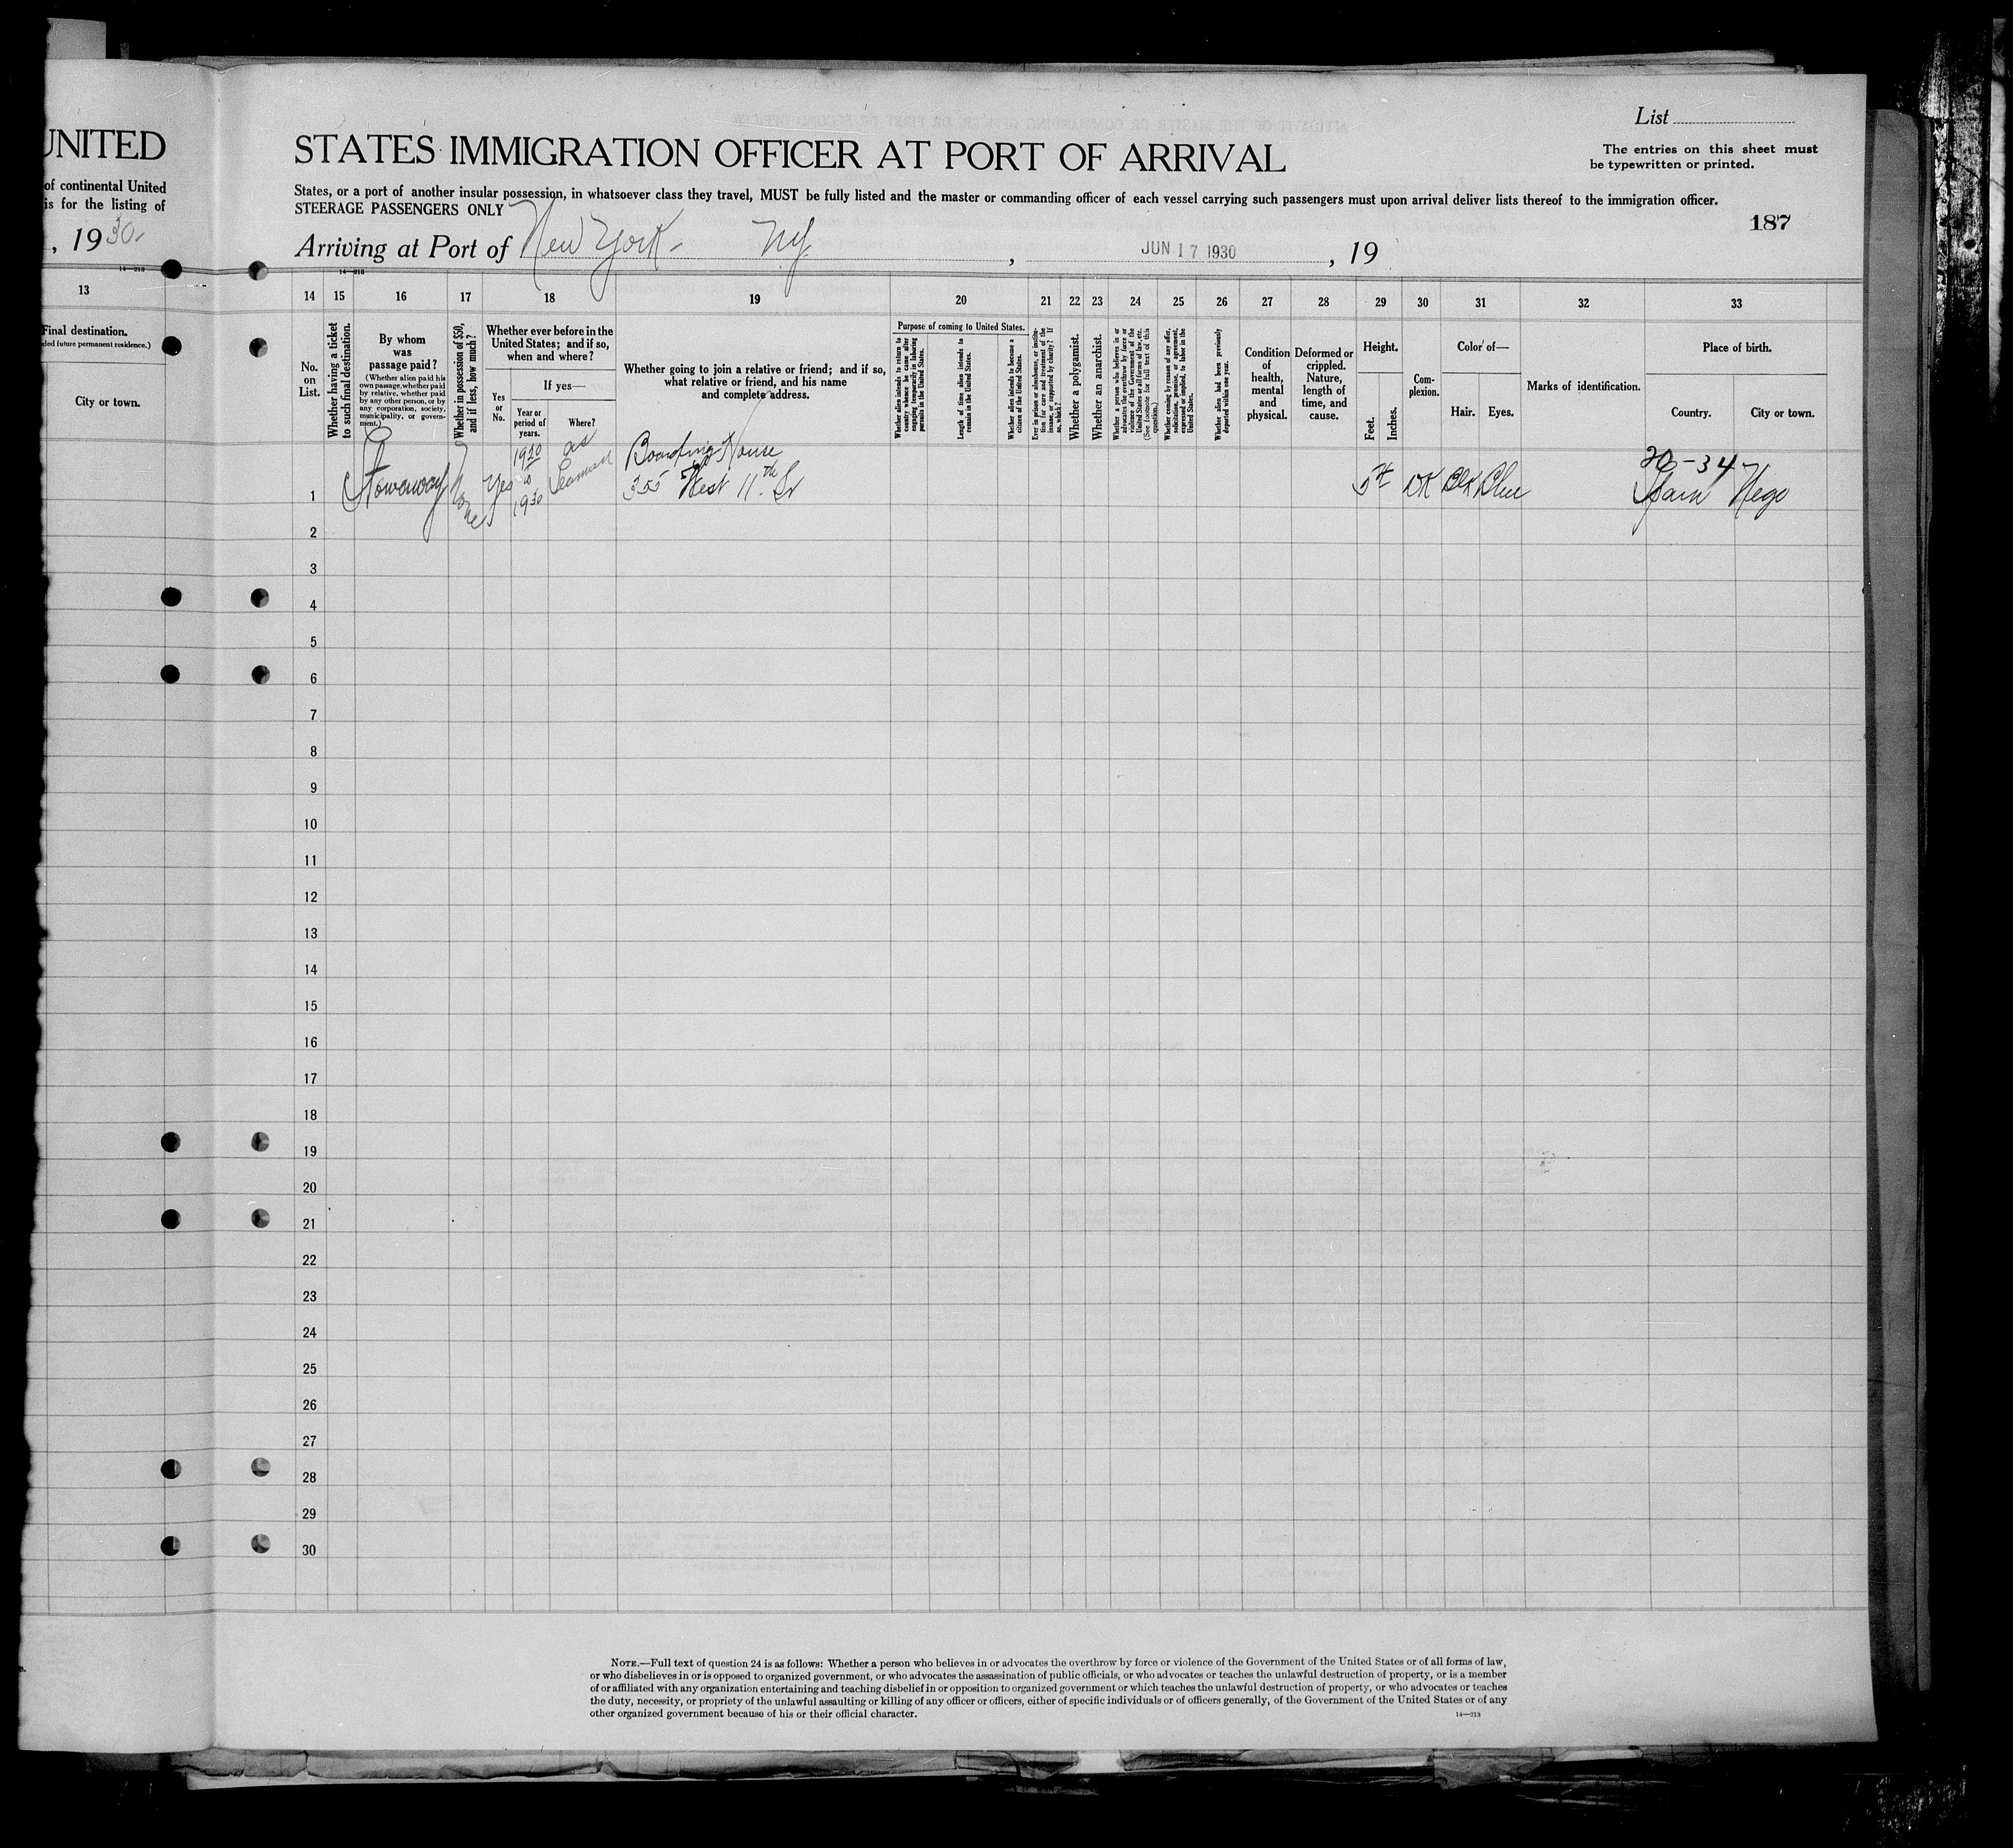 UNITED
of continental United
is for the listing of
, 1930-
14—213
13
Final destination.
ded future permanent residence.)
City or town.
List
STATES IMMIGRATION OFFICER AT PORT OF ARRIVAL
The entries on this sheet must
be typewritten or printed.
States, or a port of another insular possession, in whatsoever class they travel, MUST be fully listed and the master or commanding officer of each vessel carrying such passengers must upon arrival deliver lists thereof to the immigration officer.
STEERAGE PASSENGERS ONLY
187
Arriving at Port of New York - NY. , JUN 17 1930 , 19
14—213
14 15 16 17 18 19 20 21 22 23 24 25 26 27 28 29 30 31 32 33
No.
on
List.
Whether having a ticket
to such final destination.
By whom
was
passage paid?
(Whether alien paid his
own passage, whether paid
by relative, whether paid
by any other person, or by
any corporation, society,
municipality, or govern-
ment.)
Whether in possession of $50,
and if less, how much?
Whether ever before in the
United States; and if so,
when and where?
Yes
or
No.
If yes—
Year or
period of
years.
Where?
Whether going to join a relative or friend; and if so,
what relative or friend, and his name
and complete address.
Purpose of coming to United States.
Whether alien intends to return to
country whence he came after
engaging temporarily in laboring
pursuits in the United States.
Length of time alien intends to
remain in the United States.
Whether alien intends to become a
citizen of the United States.
Ever in prison or almshouse, or institu-
tion for care and treatment of the
insane, or supported by charity? If
so, which?
Whether a polygamist.
Whether an anarchist.
Whether a person who believes in or
advocates the overthrow by force or
violence of the Government of the
United States or all forms of law, etc.
(See footnote for full text of this
question.)
Whether coming by reason of any offer,
solicitation, promise, or agreement,
expressed or implied, to labor in the
United States.
Whether alien had been previously
deported within one year.
Condition
of
health,
mental
and
physical.
Deformed or
crippled.
Nature,
length of
time, and
cause.
Height.
Feet.
Inches.
Com-
plexion.
Color of—
Hair. Eyes.
Marks of identification.
Place of birth.
Country.
City or town.
1 Stowaway None Yes 1920
to
1930
as
Seaman
Boarding House
355 West 11th St
DK Blk Blue
20-34
Spain
2
3
4
5
6
7
8
9
10
11
12
13
14
15
16
17
18
19
20
21
22
23
24
25
26
27
28
29
30
NOTE.—Full text of question 24 is as follows: Whether a person who believes in or advocates the overthrow by force or violence of the Government of the United States or of all forms of law,
or who disbelieves in or is opposed to organized government, or who advocates the assassination of public officials, or who advocates or teaches the unlawful destruction of property, or is a member
of or affiliated with any organization entertaining and teaching disbelief in or opposition to organized government or which teaches the unlawful destruction of property, or who advocates or teaches
the duty, necessity, or propriety of the unlawful assaulting or killing of any officer or officers, either of specific individuals or of officers generally, of the Government of the United States or of any
other organized government because of his or their official character.
14—213